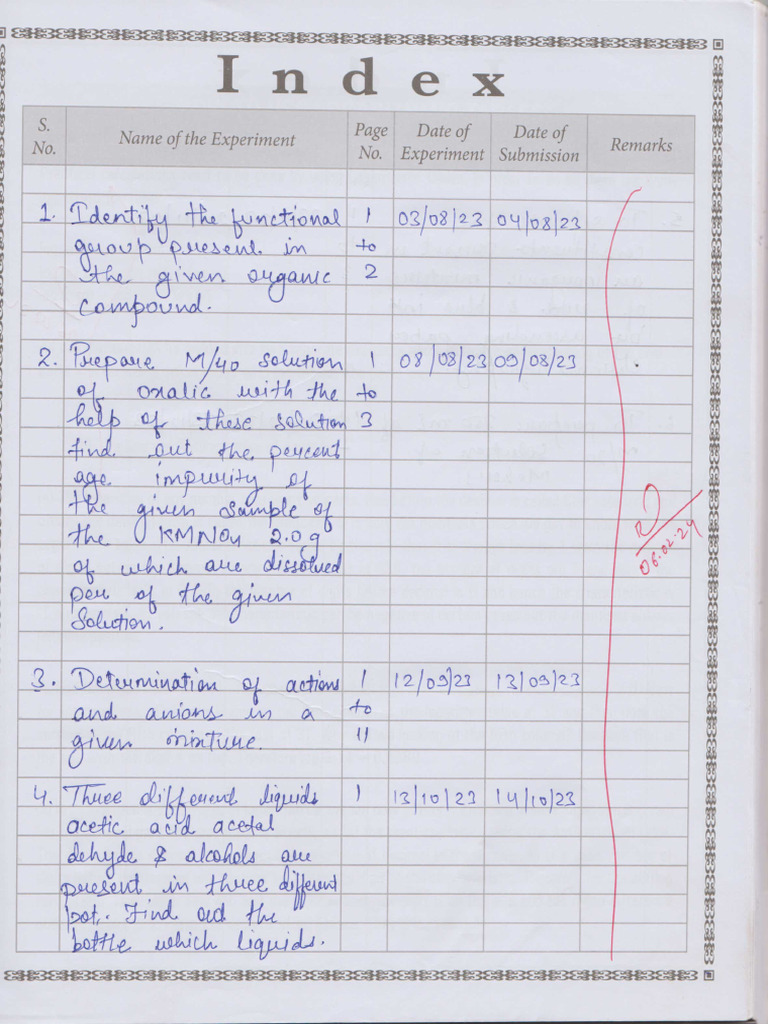 Index
S. No.
Name of the Experiment
Page No.
Date of Experiment
Date of Submission
Remarks
1. Identify the functional 1 03/08/23 04/08/23
group present in to
the given organic 2
compound.
2. Prepare M/40 solution 1 08/08/23 09/08/23
of oxalic with the to
help of these solution 3
find out the percent
age impurity of
the given sample of
the KMNO4 2.0g
of which are dissolved
per of the given
Solution.
3. Determination of actions 1 12/09/23 13/09/23
and anions in a to
given mixture. 11
4. Three different liquids 1 13/10/23 14/10/23
acetic acid acetal
dehyde & alcohols are
present in three different
pot. Find out the
bottle which liquids.
06.02.24